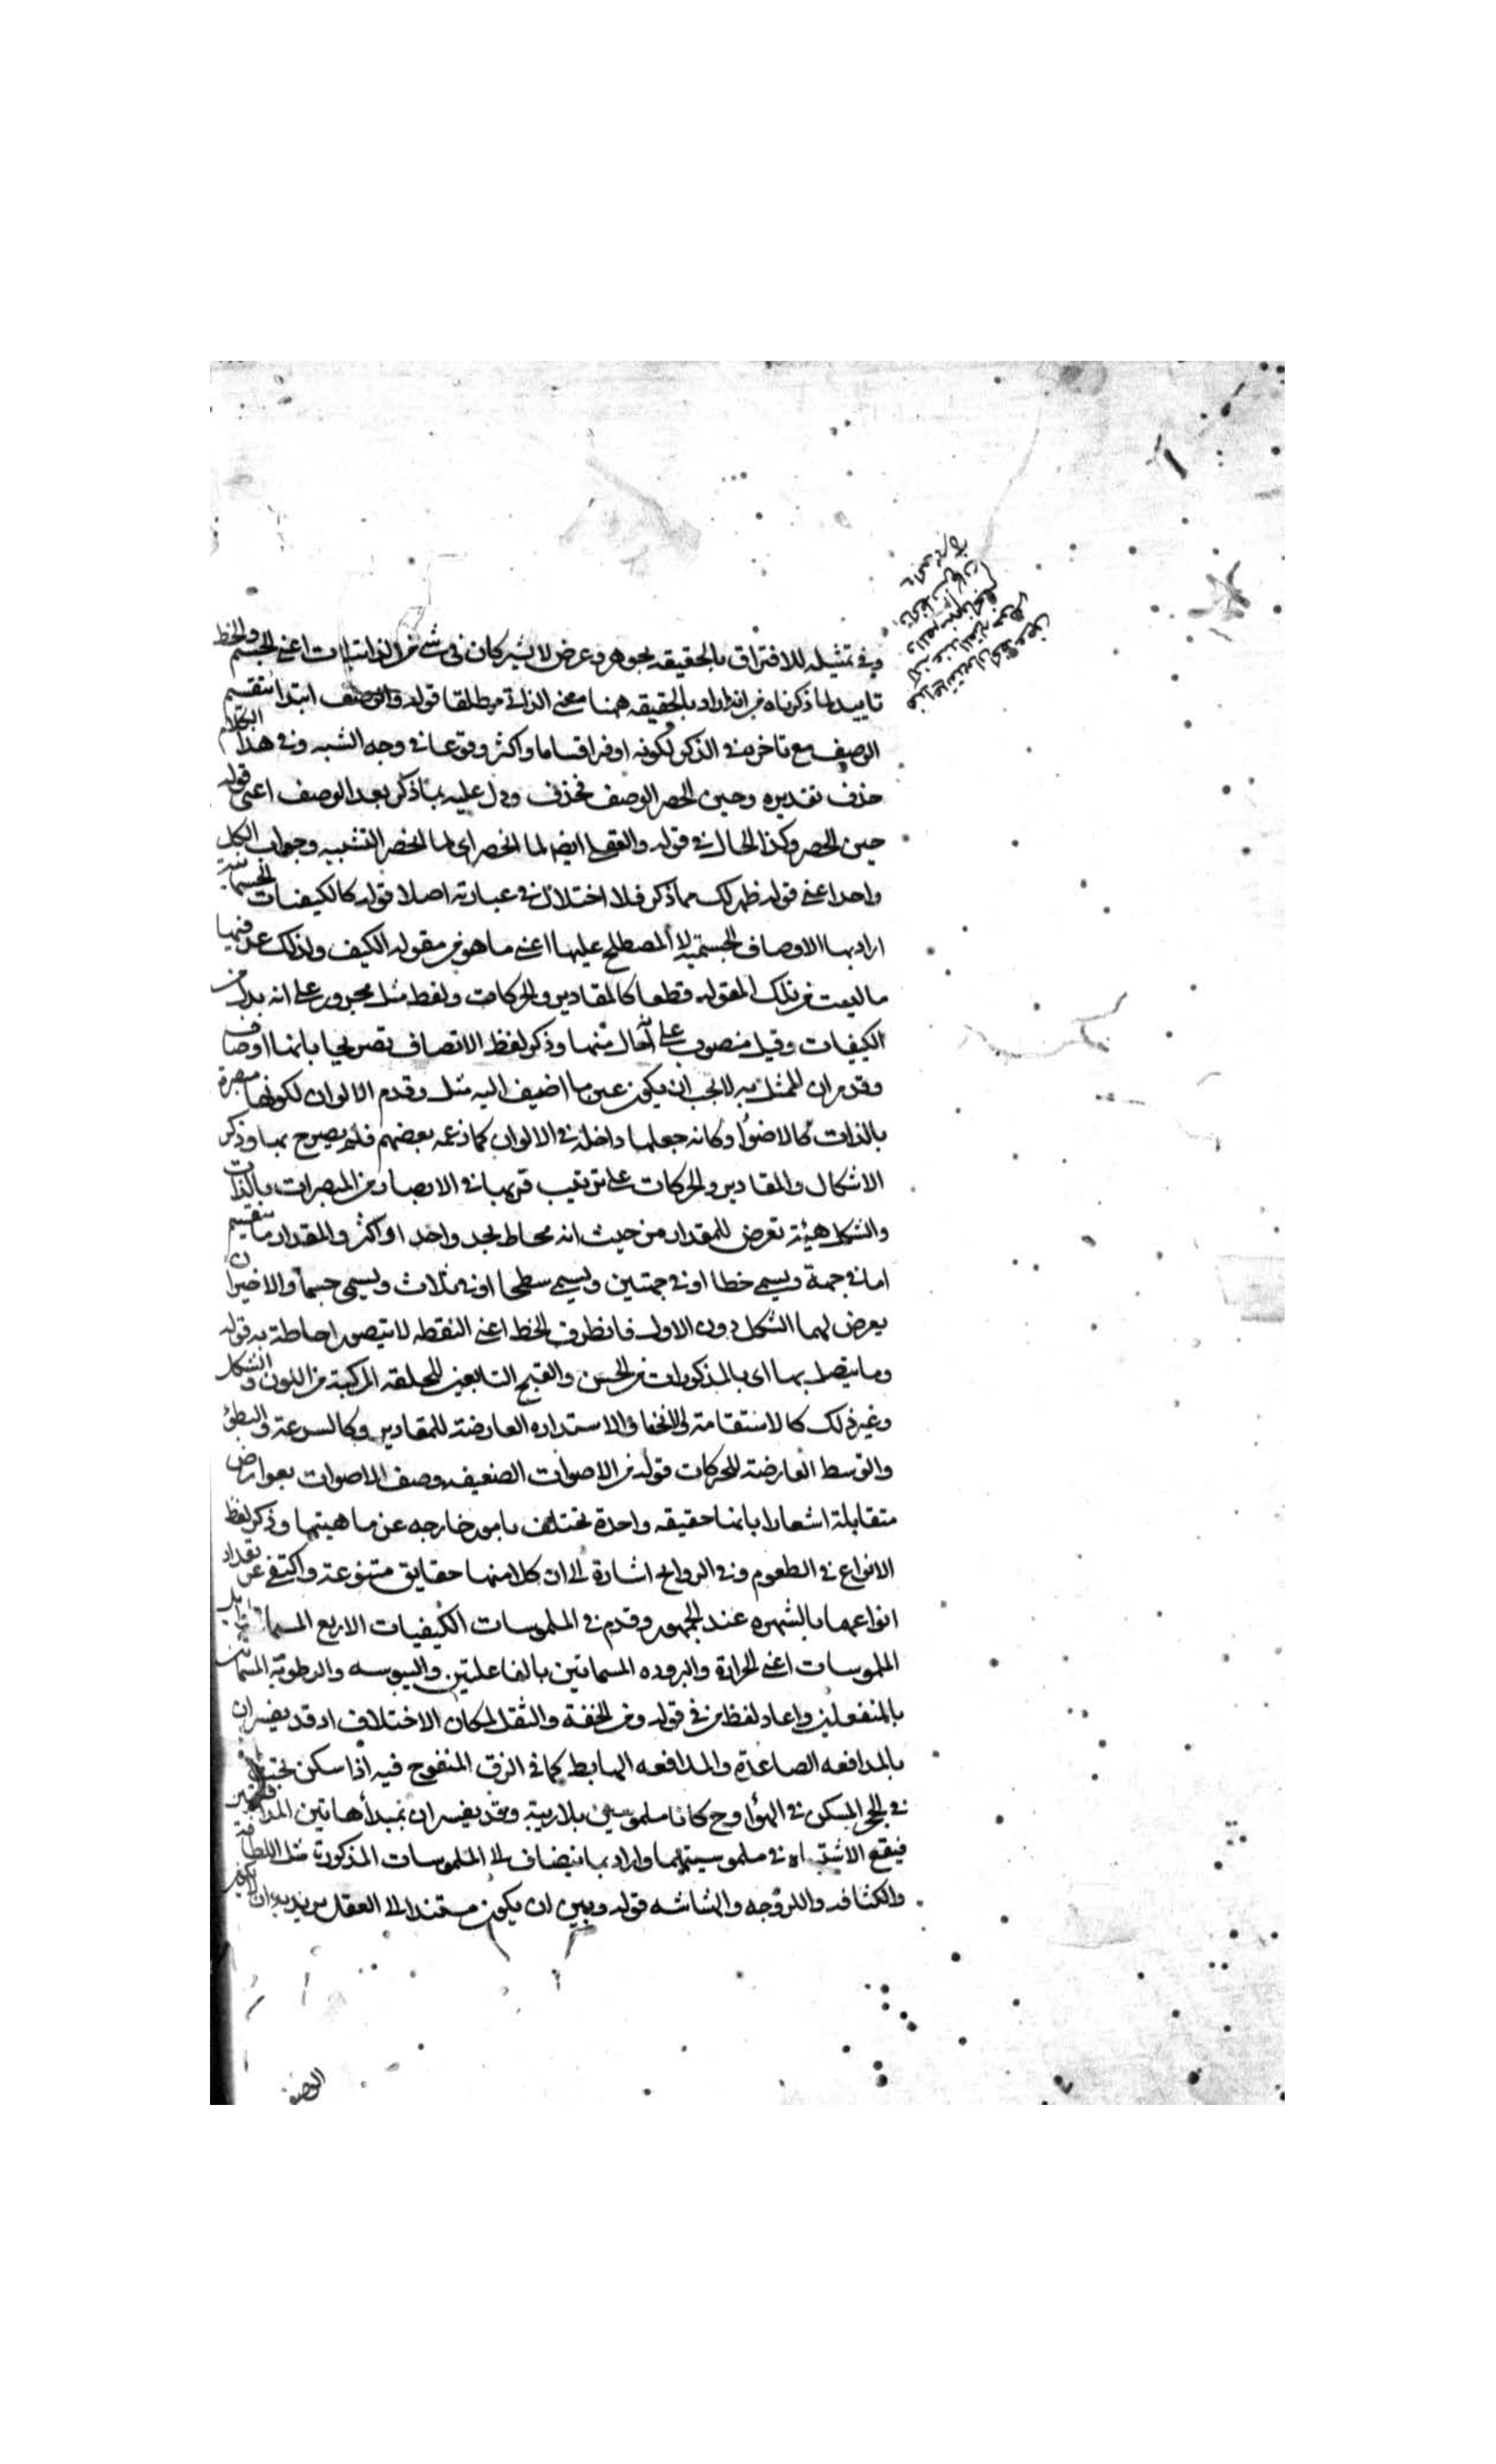 وفي تمثيله للافتراق بالحقيقة بجوهر وعرض لا يشتركان في شئ من الذاتيات اعني الجسم والخط
تاييد لما ذكرناه من انه اراد بالحقيقة همنا معنى الذات مطلقا قوله والوصف ابتدا بتقسيم
الوصف مع تاخره في الذكر لكونه اوفر اقساما واكثر وقوعا في وجه الشبه وفي هذا الكلام
حذف تقديره وحين انحصر الوصف فحذف ودل عليه بما ذكر بعد الوصف اعني قوله
حين انحصر وكذا الحال في قوله والعقلي ايضا لما انحصر اى لما انحصر التشبيه وجواب الكل
واحد اعني قوله ظهر لك مما ذكر فلا اختلال في عبارته اصلا قوله كالكيفيات الجسمانية
اراد بها الاوصاف الجسمية لا المصطلح عليها اعني ما هو من مقوله الكيف ولذلك عد فيها
ما ليست من تلك المقوله قطعا كالمقادير والحركات ولفظ مثل مجرور على انه بدل من
الكيفيات وقيل منصوب على انه حال منها وذكر لفظ الاتصاف تصريحا بانها اوصاف
وقد مر ان الممثل به لا يجب ان يكون عين ما اضيف اليه مثل وقدم الالوان لكونها مبصرة
بالذات كالاضوا وكانه جعلها داخلة في الالوان كما زعمه بعضهم فلم يصرح بها وذكر
الاشكال والمقادير والحركات على ترتيب قربها في الابصار من المبصرات بالذات
والشكل هيئة تعرض للمقدار من حيث انه محاط بحد واحد او اكثر والمقدار ما ينقسم
اما في جهة ويسمى خطا او في جهتين ويسمى سطحا او في ثلاث ويسمى جسما والاخيران
يعرض لهما الشكل دون الاول فان طرف الخط اعني النقطه لا يتصور احاطته به قوله
وما يتصل بها اى بالمذكورات من الحسن والقبح التابعين للخلقه المركبة من اللون والشكل
وغير ذلك كالاستقامة والانحنا والاستداره العارضة للمقادير وكالسرعة والبطؤ
والتوسط العارضة للحركات قوله من الاصوات الضعيفه وصف الاصوات بعوارض
متقابلة اشعارا بانها حقيقه واحدة تختلف بامور خارجه عن ماهيتها وذكر لفظ
الانواع في الطعوم وفي الروايح اشارة الى ان كلا منها حقايق متنوعة واكتفى عن تعداد
انواعهما بالشهره عند الجمهور وقدم في الملموسات الكيفيات الاربع المسماة اوايل
الملموسات اعني الحرارة والبروده المسماتين بالفاعلتين واليبوسه والرطوبة المسماتين
بالمنفعلتين واعاد لفظ من في قوله ومن الخفة والثقل لمكان الاختلاف اذ قد يفسران
بالمدافعه الصاعدة والمدافعه الهابطه كما في الزق المنفوخ فيه اذا سكن تحت الماء
في الحجر المسكن في الهواء وح كانا ملموسين بلا ريبة وقد يفسران بمبدأ هاتين المدافعتين
فيقع الاشتباه في ملموسيتهما واراد بما ينضاف الى الملموسات المذكورة مثل اللطافة
والكثافه واللزوجه والهشاشه قوله وبين ان يكون مستندا الى العقل يريد به ان يكون
الوصف